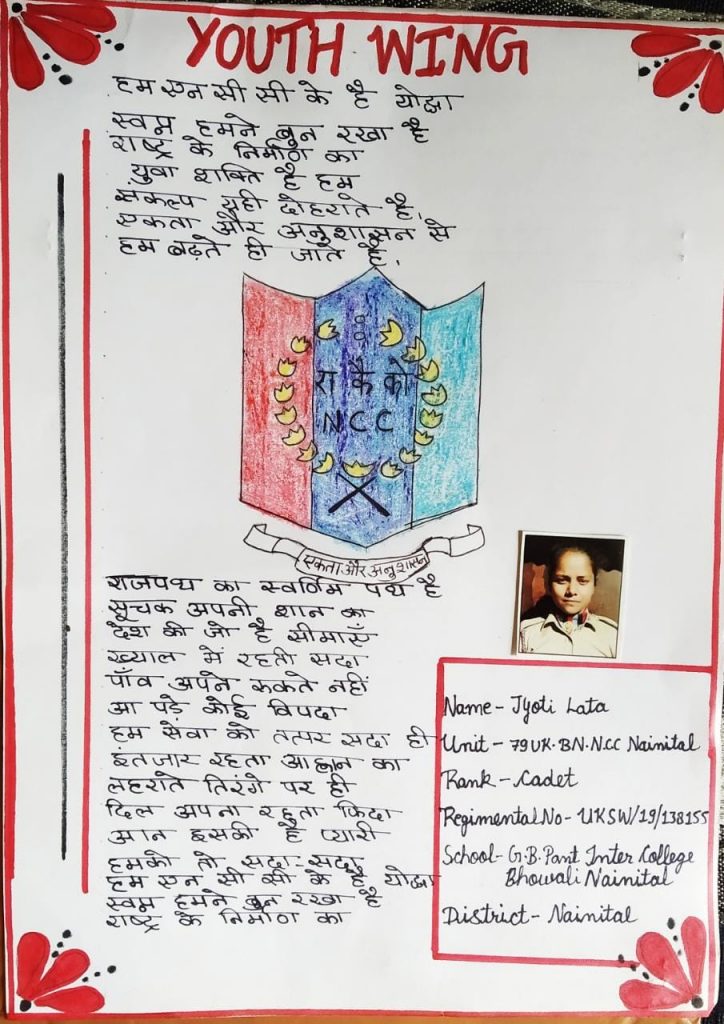 YOUTH WING
हम एन सी सी के है योद्धा
स्वप्न हमने बुन रखा है
राष्ट्र के निर्माण का
युवा शक्ति है हम
संकल्प यही दोहराते है,
एकता और अनुशासन से
हम बढ़ते ही जाते है.
रा कै को
NCC
एकता और अनुशासन
राजपथ का स्वर्णिम पथ है
सूचक अपनी शान का
देश की जो है सीमाएँ
ख्याल में रहती सदा
पाँव अपने रुकते नहीं
आ पड़े कोई विपदा
हम सेवा को तत्पर सदा ही
इंतजार रहता आह्वान का
लहराते तिरंगे पर ही
दिल अपना रहता फिदा
आन इसकी है प्यारी
हमको तो सदा-सदा
हम एन सी सी के है योद्धा
स्वप्न हमने बुन रखा है
राष्ट्र के निर्माण का
Name - Jyoti Lata
Unit - 79 UK. BN. N.C.C Nainital
Rank - Cadet
Regimental No - UKSW/19/138155
School - G.B. Pant Inter College
Bhowali Nainital
District - Nainital